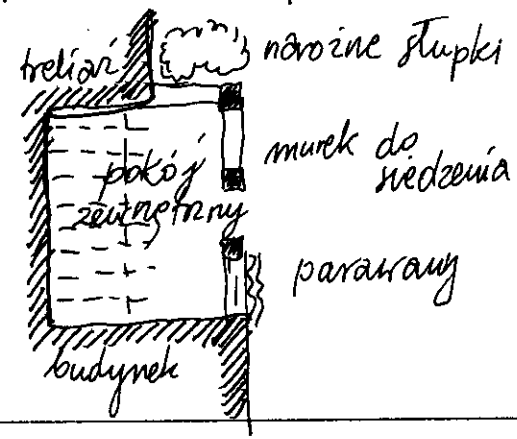 treliaż
narożne słupki
murek do
siedzenia
pokój
zewnętrzny
parawany
budynek